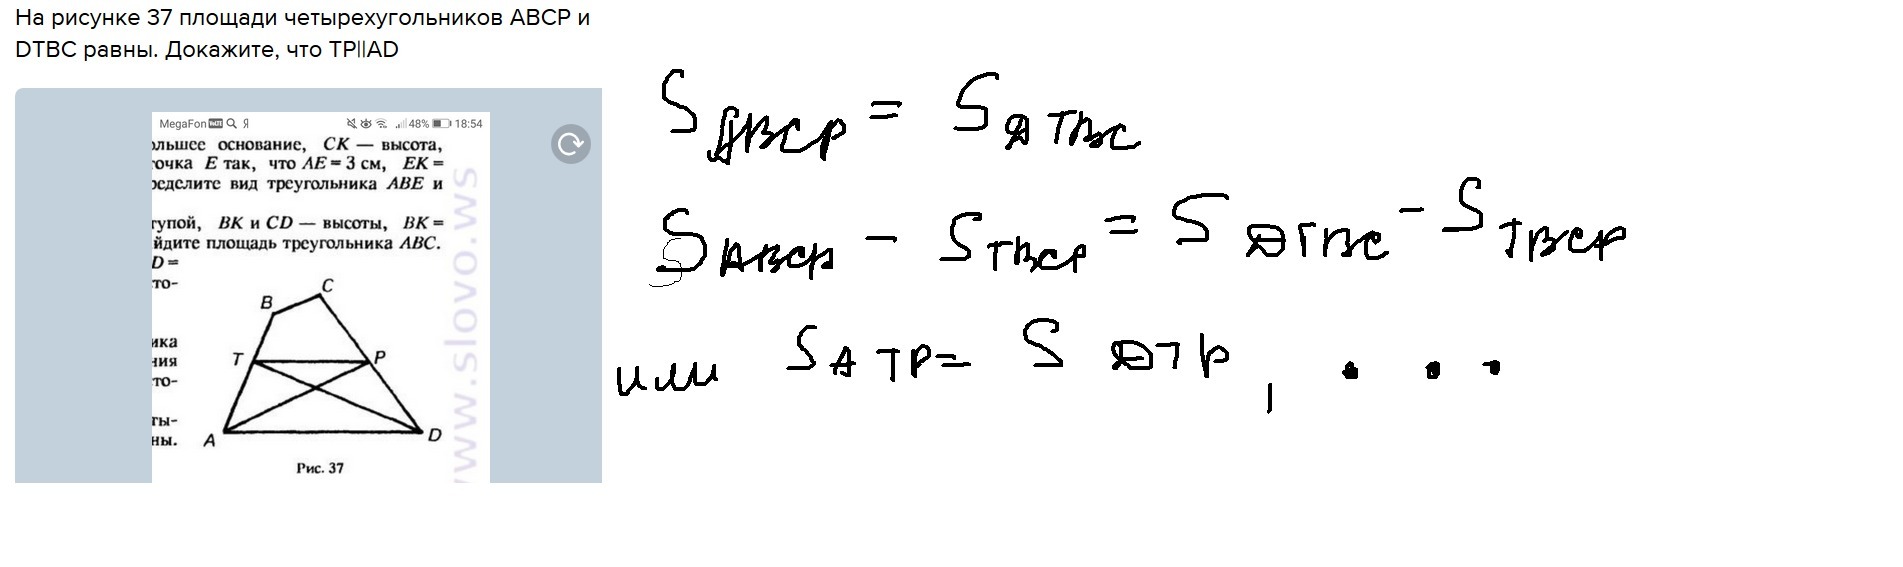 На рисунке 37 площади четырехугольников ABCP и
DTBC равны. Докажите, что TP||AD
MegaFon Я 48% 18:54
ольшее основание, CK — высота,
очка E так, что AE = 3 см, EK =
ределите вид треугольника ABE и
тупой, BK и CD — высоты, BK =
йдите площадь треугольника ABC.
D =
то-
ика
ния
то-
ты-
ны.
B C
T P
A D
Рис. 37
www.slovo.ws
S ABCP = S DTBC
S ABCP - S TBCP = S DTBC - S TBCP
или S ATP = S DTP, . . .